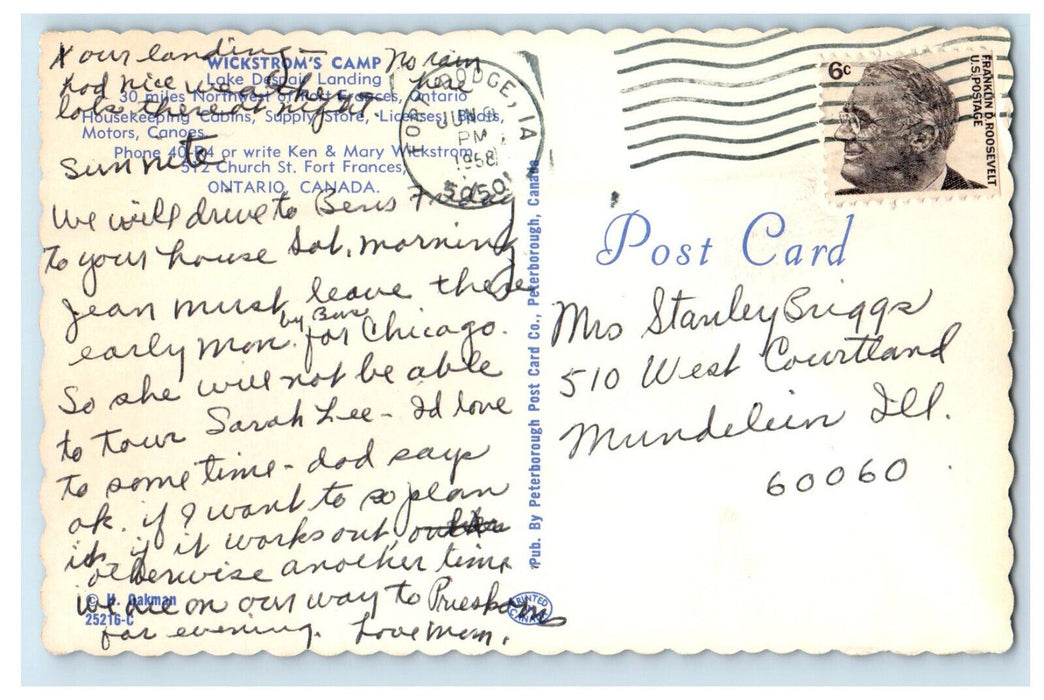 X our landing - No rain
had nice weather here
lots three at night.
WICKSTROM'S CAMP
Lake Despair Landing
30 miles Northwest of Fort Frances, Ontario
Housekeeping Cabins, Supply Store, Licenses, Boats,
Motors, Canoes.
Phone or write Ken & Mary Wickstrom,
512 Church St. Fort Frances,
ONTARIO, CANADA.
Sun nite
We will drive to Bens Friday
To your house Sat. morning
Jean must leave there
early Mon. by Bus for Chicago.
So she will not be able
to tour Sarah Lee - I'd love
to some time - dad says
ok. if I want to so plan
it if it works out,
otherwise another time
we are on our way to
for evening. Love Mom.
© K. Oakman
25216-C
PRINTED
CANADA
Pub. By Peterborough Post Card Co., Peterborough, Canada
FORT DODGE, IA
JUN
PM
1968
50501
6c
FRANKLIN D. ROOSEVELT
U.S. POSTAGE
Post Card
Mrs Stanley Briggs
510 West Courtland
Mundelein Ill.
60060